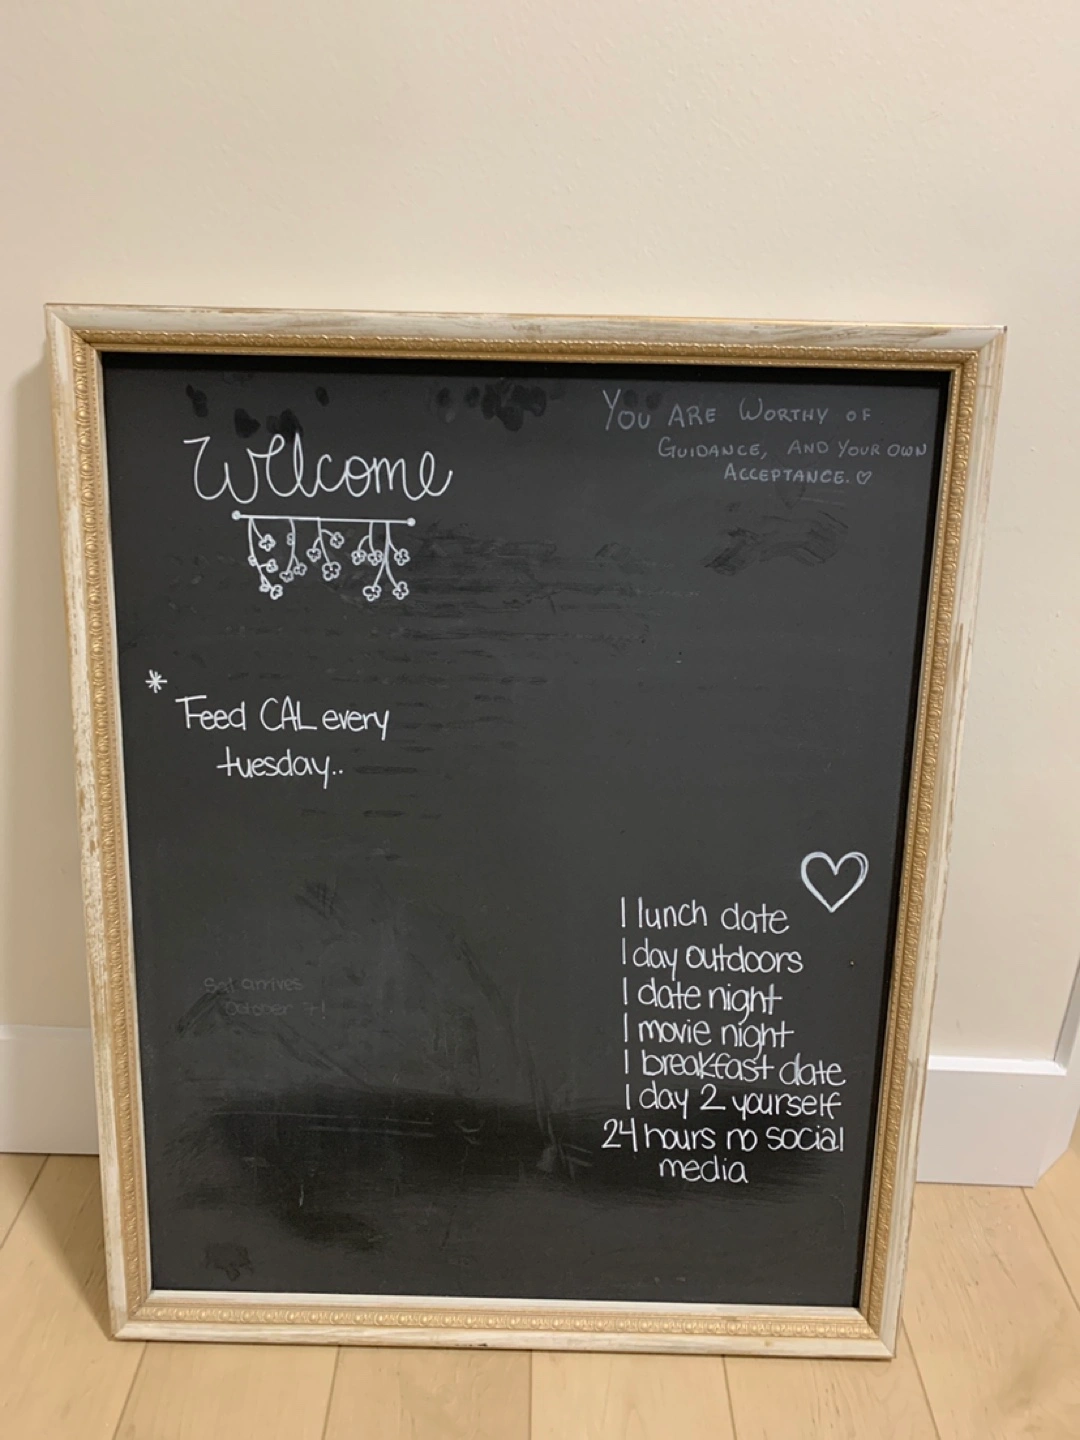 Welcome
YOU ARE WORTHY OF
GUIDANCE, AND YOUR OWN
ACCEPTANCE. ♡
* Feed CAL every
tuesday..
arrives
October 7!
1 lunch date
1 day outdoors
1 date night
1 movie night
1 breakfast date
1 day 2 yourself
24 hours no social
media